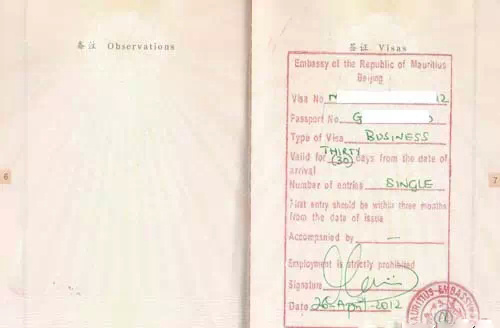 备注 Observations
签证 Visas
Embassy of the Republic of Mauritius
Beijing
Visa No N 12
Passport No. G
Type of Visa BUSINESS
Valid for THIRTY (30) days from the date of
arrival
Number of entries SINGLE
First entry should be within three months
from the date of issue
Accompanied by —
Employment is strictly prohibited
Signature
Date 26 April 2012
6
7
MAURITIUS EMBASSY